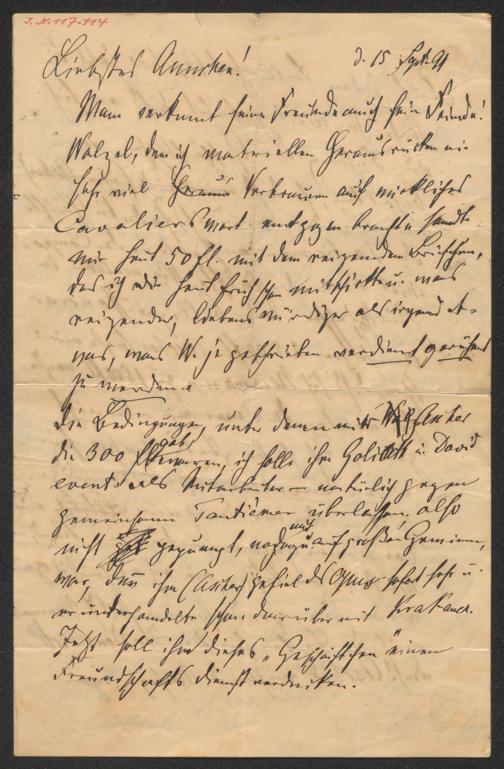 J.N. 117.114
Liebstes Annchen! d. 15 Sept. 91
Man verkennt seine Freunde auch sein Feinde!
Walzel, dem ich materiellen Herausrücken nie
sehr viel Vertrauen auf wirkliches
Cavalierswort entgegen brachte sandte
mir heut 50 fl. mit dem reizenden Briefchen,
das ich dir heut früh schon mitschickte u. was
reizender, liebenswürdiger als irgend et-
was, was W. je geschrieben verdient gerühmt
zu werden.
Die Bedingungen, unter denen mir
die 300 fl gab, ich solle ihm Goliath u. David
event. als Mitarbeiter – natürlich gegen
gemeinsame Tantièmen überlassen, also
nicht gepumpt, auf großen Gewinn,
war, denn ihm gefiel das Opus sofort sehr u.
er unterhandelte schon darüber mit
Jetzt soll ihm dieses „Geschäftchen" einen
Freundschaftsdienst verdecken.